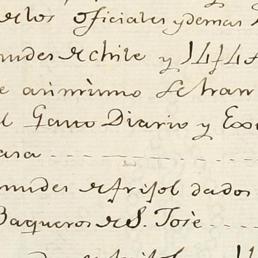 los oficiales y demas
mudes de chile y 1414
e asimismo se han
Gasto Diario y Ex
asa
mudes de frisol dados
Baqueros de S. Jose